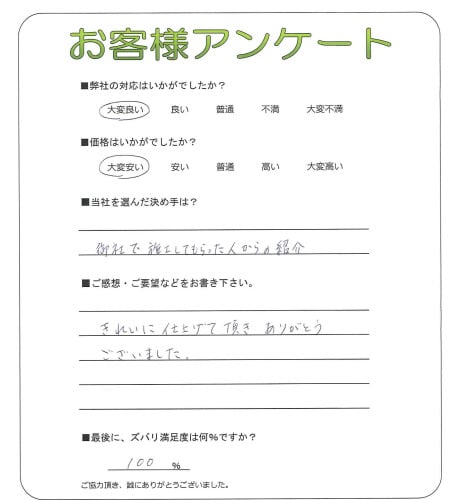 お客様アンケート
■弊社の対応はいかがでしたか？
大変良い 良い 普通 不満 大変不満
■価格はいかがでしたか？
大変安い 安い 普通 高い 大変高い
■当社を選んだ決め手は？
御社で施工してもらった人からの紹介
■ご感想・ご要望などをお書き下さい。
きれいに仕上げて頂き ありがとう
ございました。
■最後に、ズバリ満足度は何%ですか？
100 %
ご協力頂き、誠にありがとうございました。